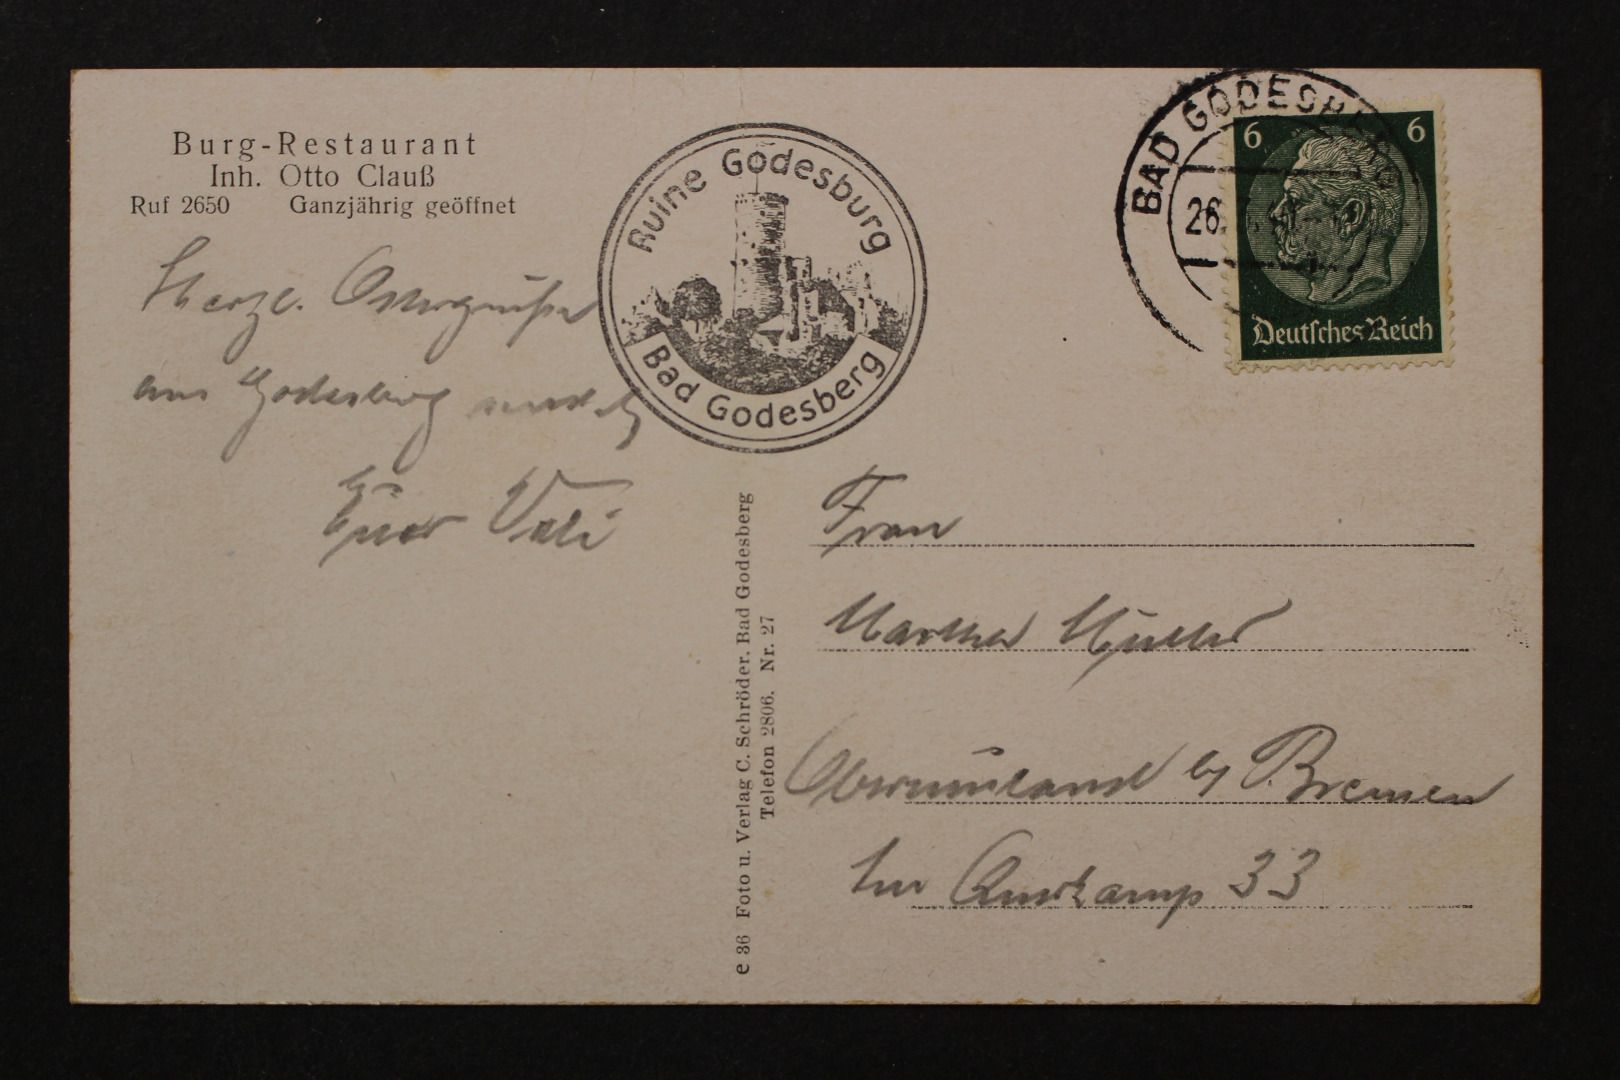 Burg-Restaurant
Inh. Otto Clauß
Ruf 2650 Ganzjährig geöffnet
Herzl. Ostergrüße
aus Godesberg sendet
Euer Vati
Ruine Godesburg
Bad Godesberg
BAD GODESBERG
26.
6 6
Deutsches Reich
e 36 Foto u. Verlag C. Schröder, Bad Godesberg
Telefon 2806. Nr. 27
Frau
Martha Müller
Oberneuland by Bremen
Im 33